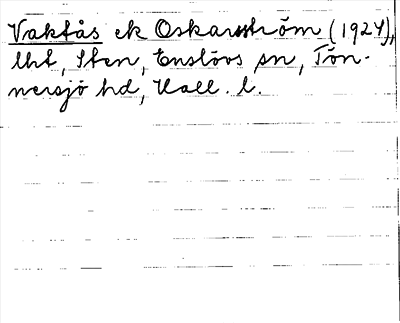 Vaktås ek Oskarström (1924),
lht, Sten, Enslövs sn, Tön-
nersjö hd, Hall. l.